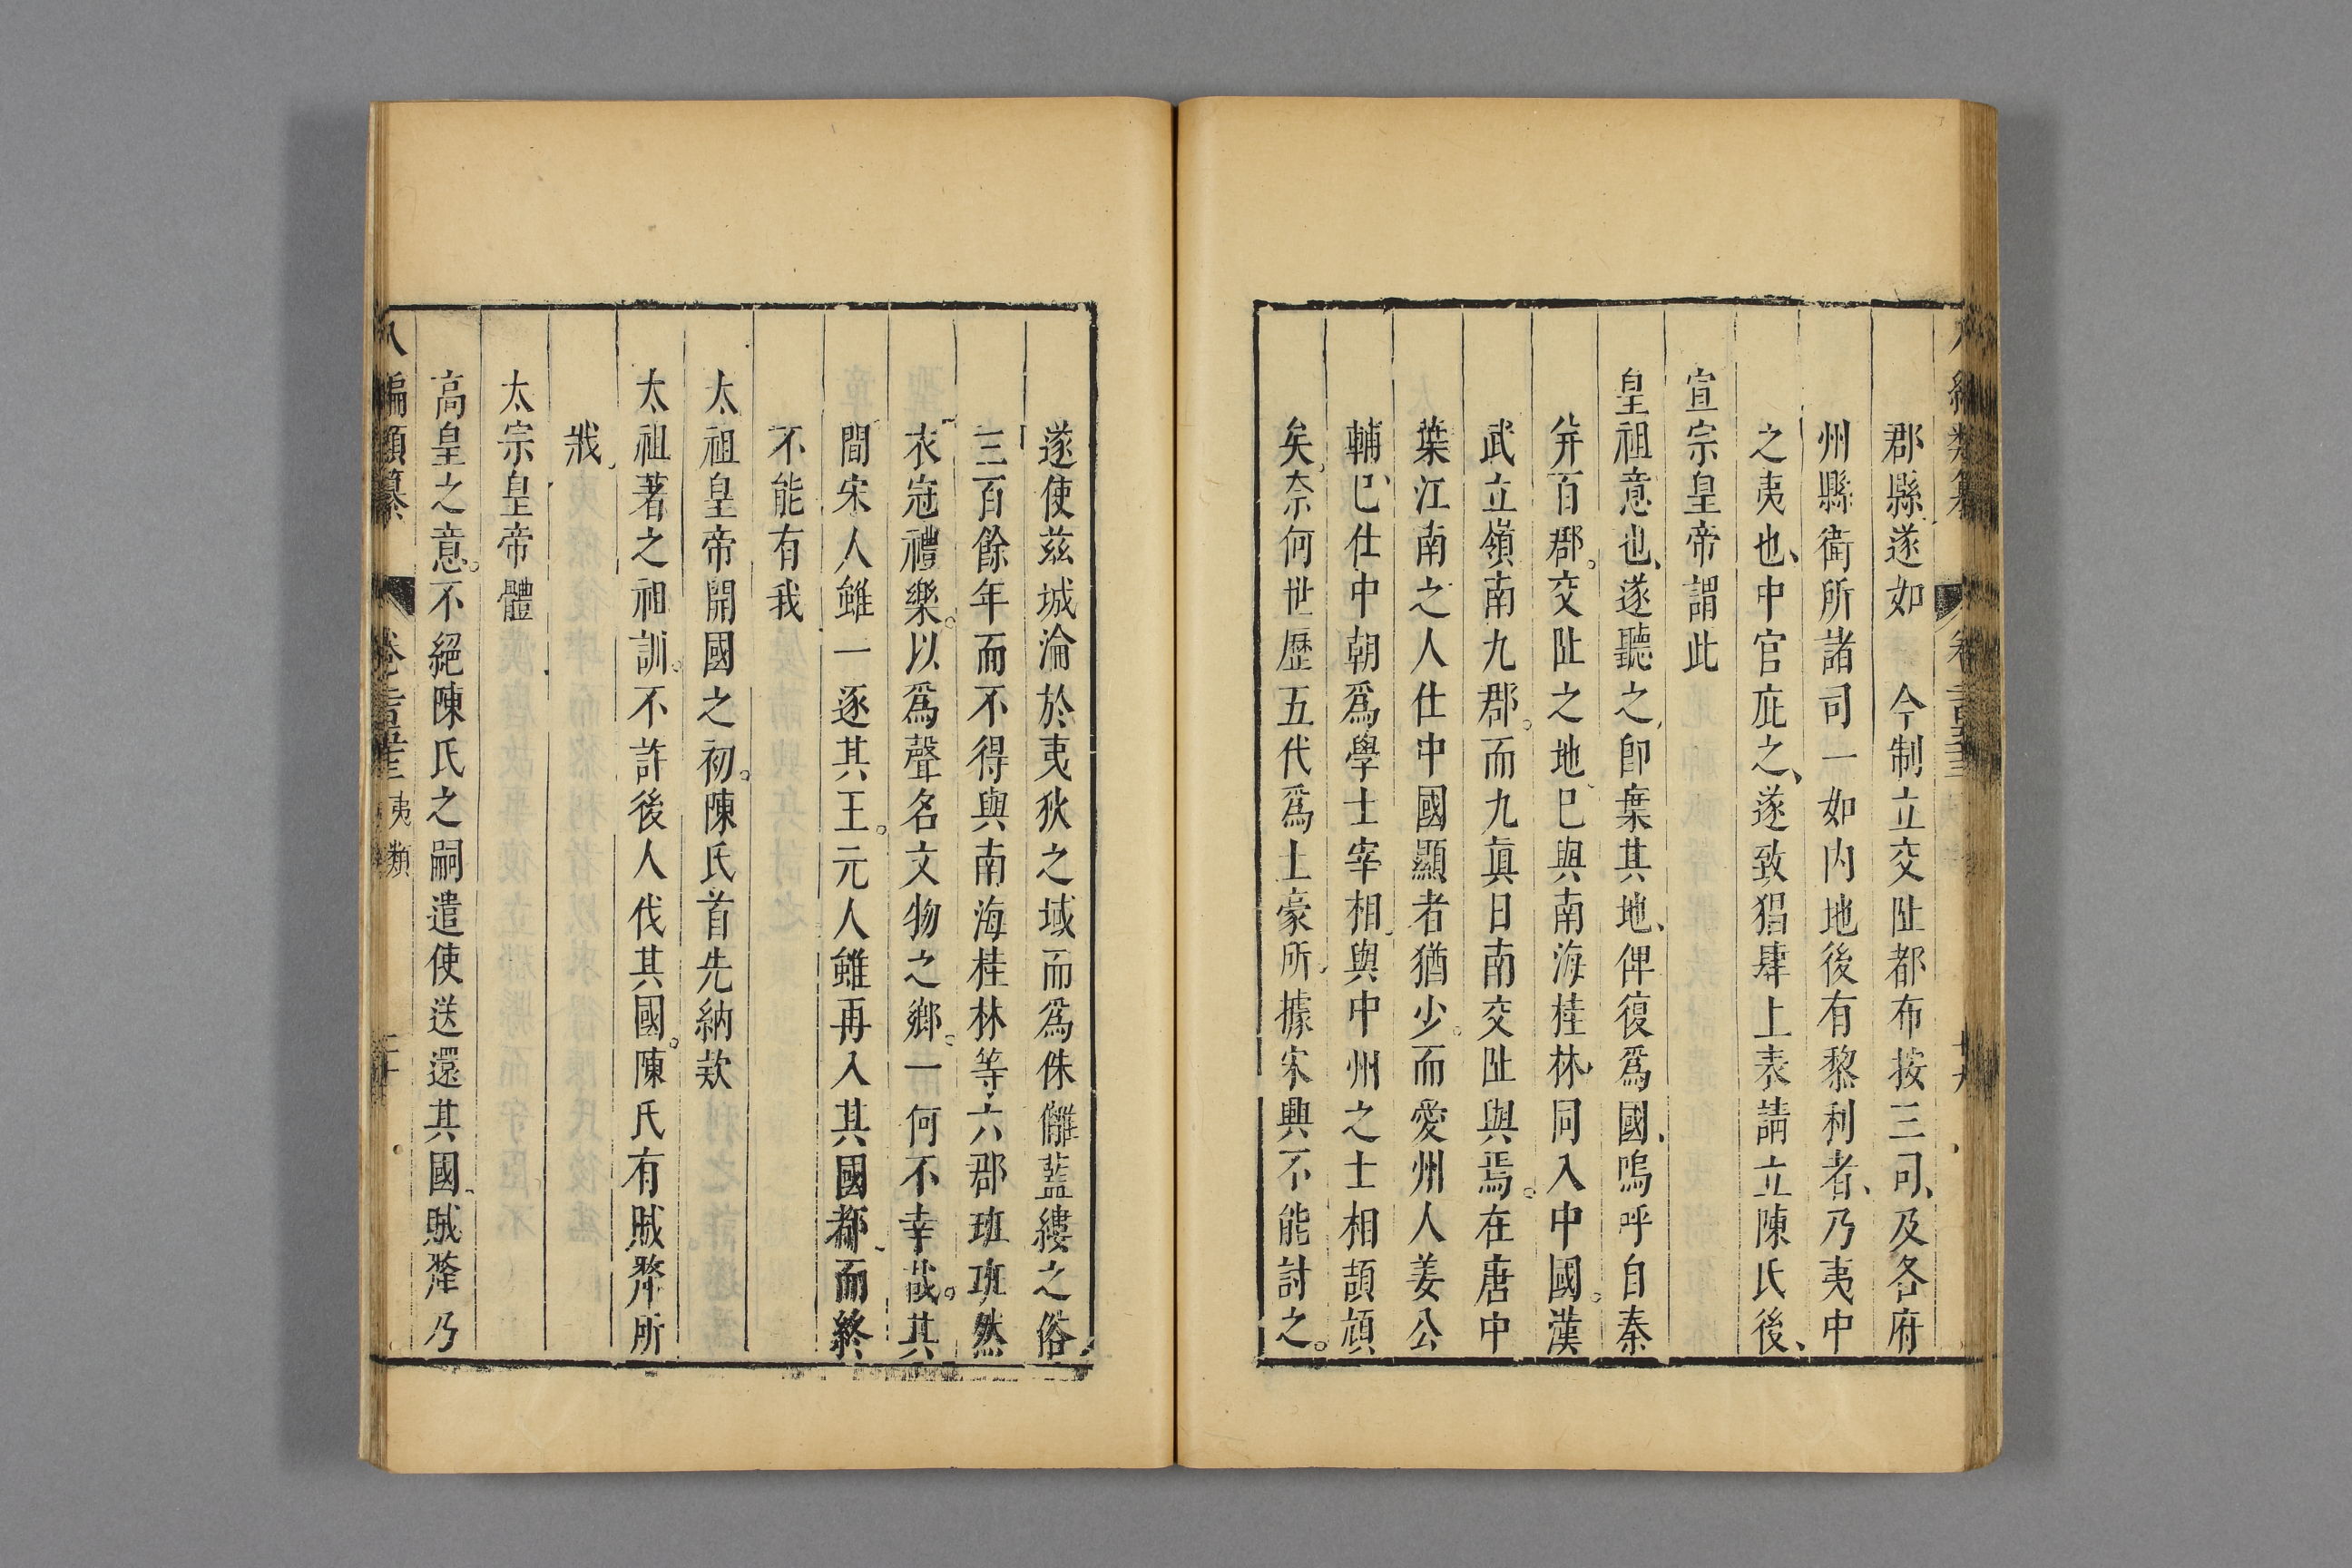 郡縣遂如　今制立交阯都布按三司、及各府
州縣衛所諸司一如内地後有黎利者、乃夷中
之夷也、中官庇之、遂致猖肆上表請立陳氏後、
宣宗皇帝謂此
皇祖意也、遂聽之、卽棄其地、俾復爲國、嗚呼自秦
并百郡。交阯之地、巳與南海桂林、同入中國。漢
武立嶺南九郡。而九眞日南交阯與焉。在唐中
葉江南之人仕中國顯者猶少。而愛州人姜公
輔、巳仕中朝爲學士宰相、與中州之士相頡頏
矣、奈何世歷五代爲土豪所、據宋興不能討之。
遂使兹城淪於夷狄之域而爲侏㒧藍縷之俗
三百餘年而不得與南海桂林等六郡班班然
衣冠禮樂。以爲聲名文物之鄉。一何不幸哉。其
間宋人雖一逐其王。元人雖再入其國都、而終
不能有我
太祖皇帝開國之初。陳氏首先納款
太祖著之祖訓。不許後人伐其國。陳氏有賊犛所
戕、
太宗皇帝體
高皇之意。不絕陳氏之嗣遣使送還其國、賊犛乃
八編類纂　夷類